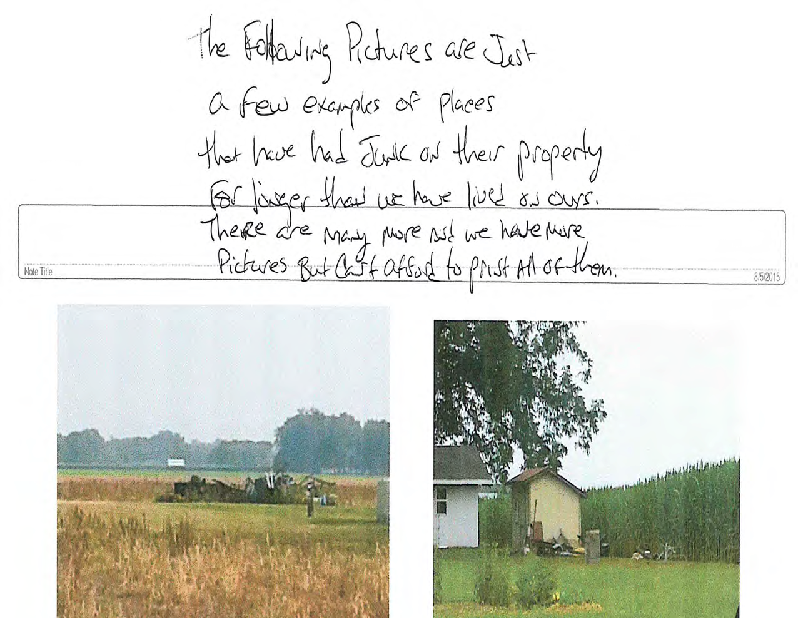 The Following Pictures are Just
a few examples of places
that have had Junk on their property
For longer than we have lived on ours.
There are many more and we have more
Pictures But Can't afford to print All of them.
Note Title
8/5/2015